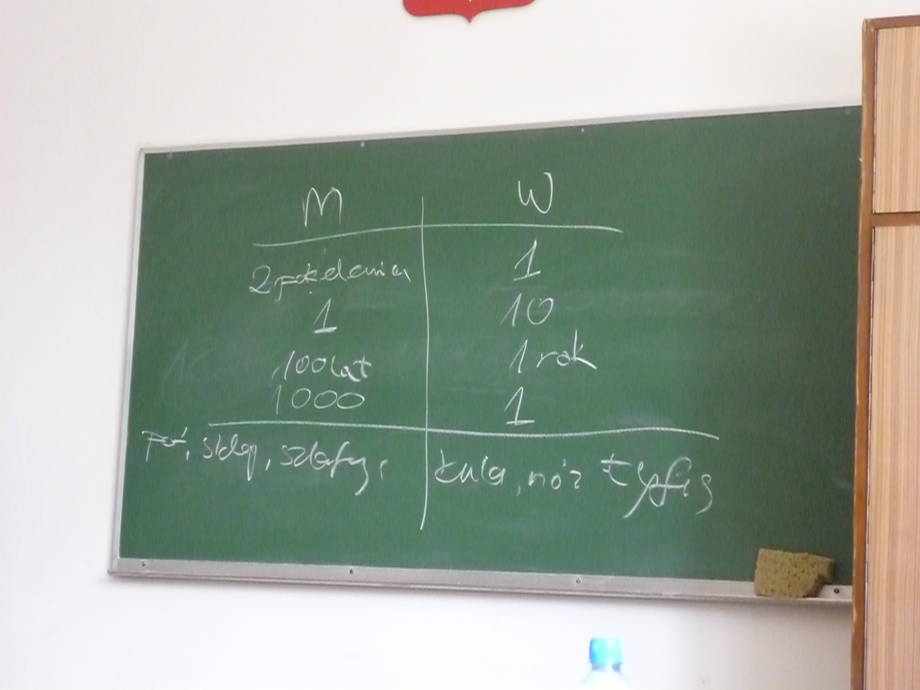 M W
2 pokolenia 1
1 10
100 lat 1 rok
1000 1
sklep, szlafny, kula, nóż tyfus